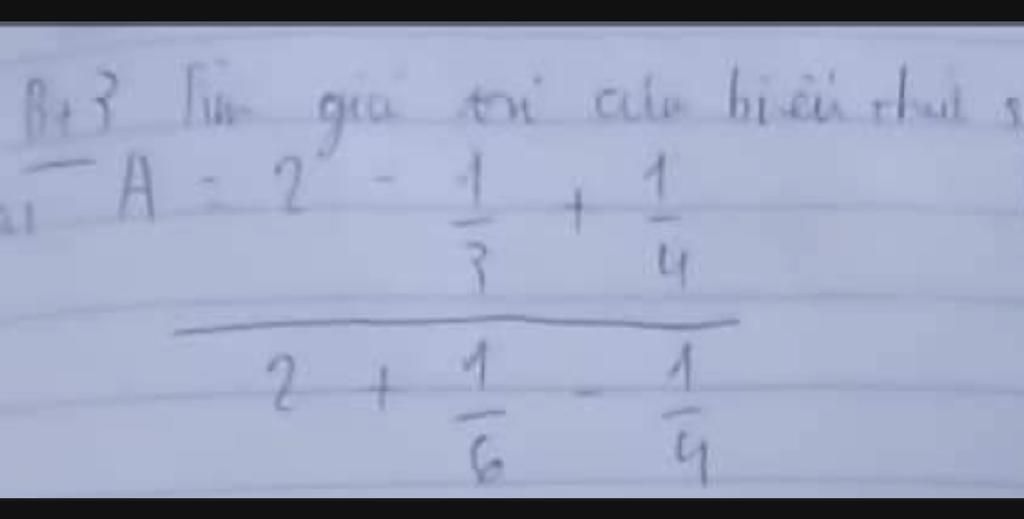 B+3 Tìm giá trị của biểu thức s
a1 A = 2 - 1/3 + 1/4
2 + 1/6 - 1/4